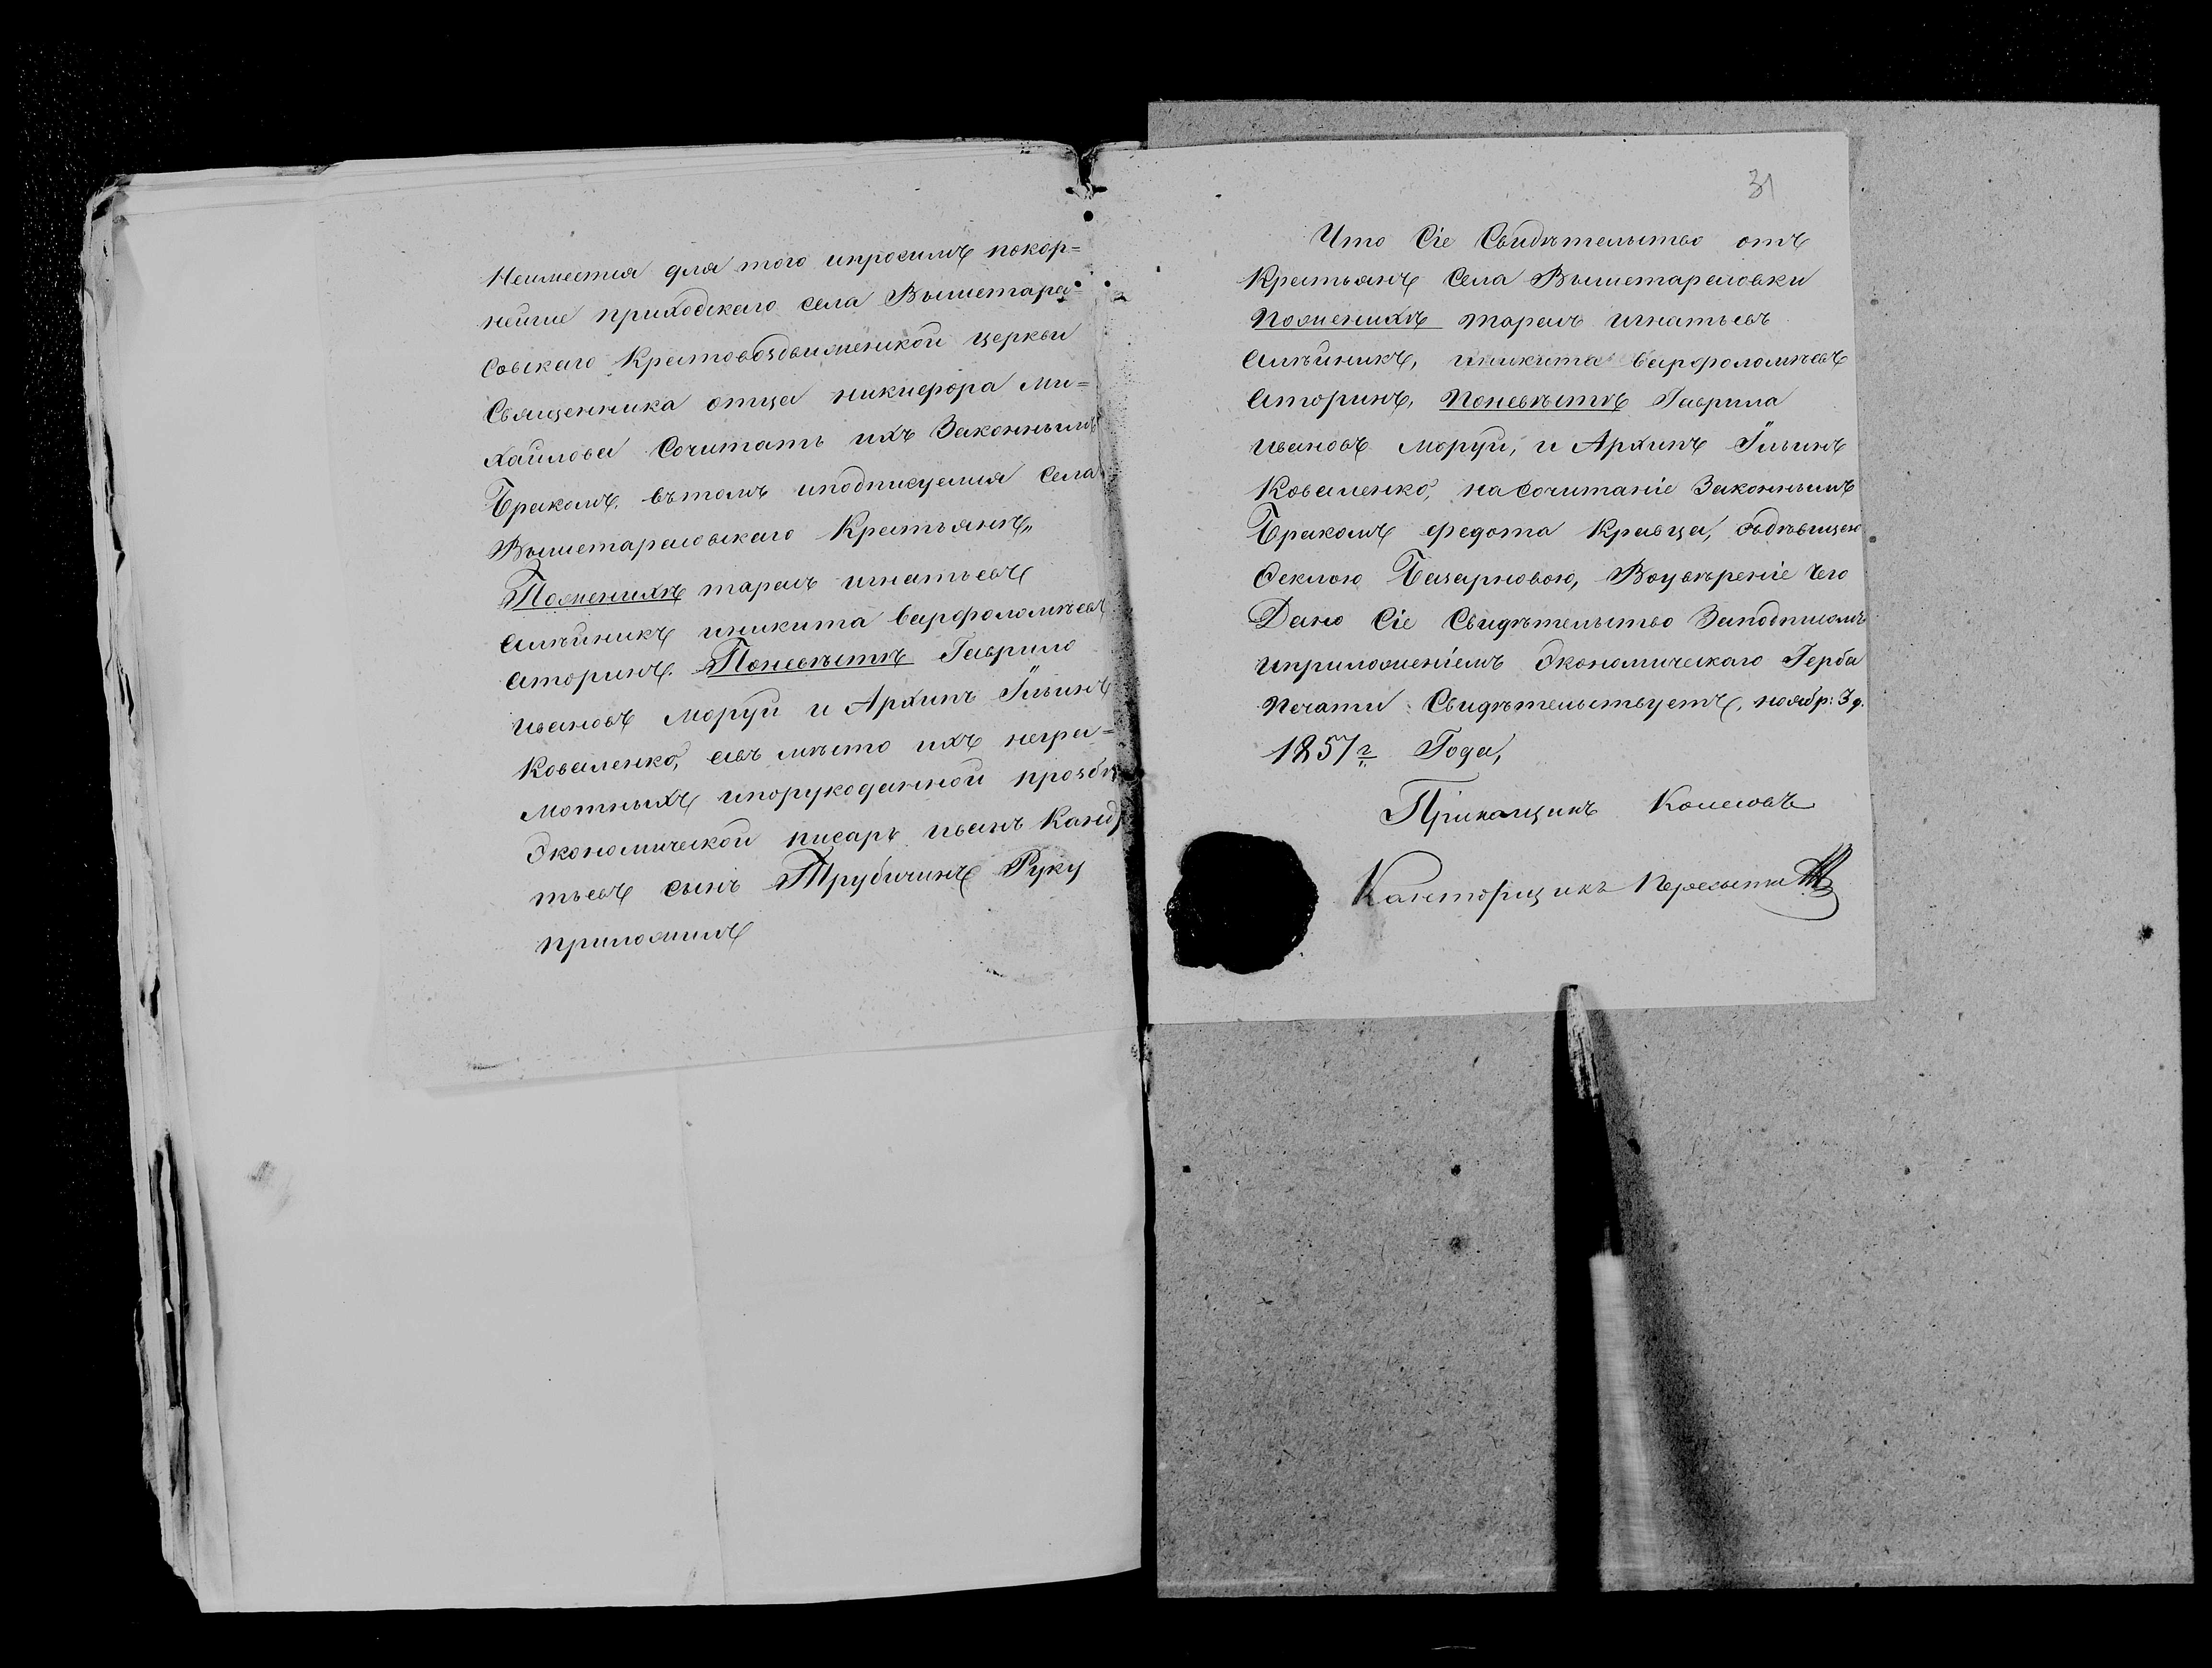 Неимеетца для того ипросимъ покор=
нейше приходскаго села Вышетара=
совскаго Крестовоздвиженской церкви
Священника отца никифора ми=
хайлова Сочитать ихъ Законнымъ
Бракомъ. вътомъ иподписуемся Села
Вышетарасовскаго Крестьянъ„
Поженихѣ тарасъ игнатьевъ
иникита варфоломѣевъ
Аторинъ. Поневѣстѣ Гаврило
ивановъ Моруй и Архипъ Ильинъ
Коваленко, авъ мѣсто ихъ негра=
мотныхъ ипорукоданной прозбѣ
Экономической писарь иванъ Канд
тьевъ сынъ Трубичинъ Руку
приложилъ
31
Что Сіе Свидѣтельство отъ
Крестьянъ Села Вышетарасовки
Поженихѣ тарасъ игнатьевъ
иникита варфоломѣевъ
Аторинъ, Поневѣстѣ Гаврила
ивановъ Моруй, и Архипъ Ильинъ
Коваленко, на Сочитаніе Законнымъ
Бракомъ федота Кравца, здѣвицею
Феклою Базарновою, Воувѣреніе чего
Дано Сіе Свидѣтельство Заподписомъ
иприложеніемъ Экономическаго Герба
Печати Свидѣтельствуетъ, ноябр: 3 д.
1857г Года,
Прикащикъ
Канторщикъ